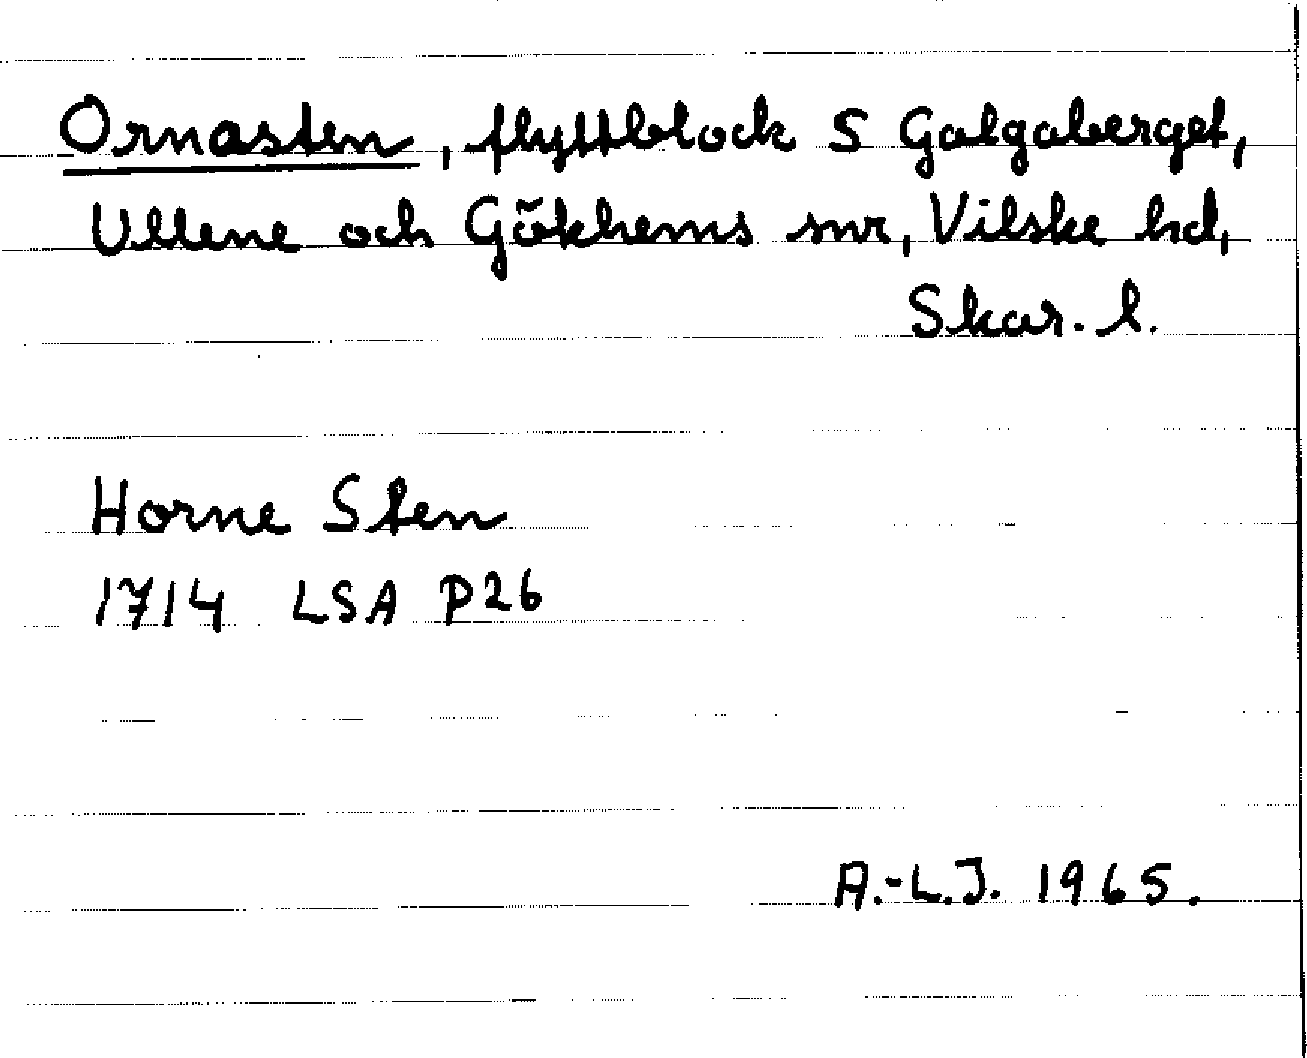 Ornasten, flyttblock S Galgaberget,
Ullene och Gökhems snr, Vilske hd,
Skar. l.
Horne Sten
1714 LSA P26
A.-L.J. 1965.